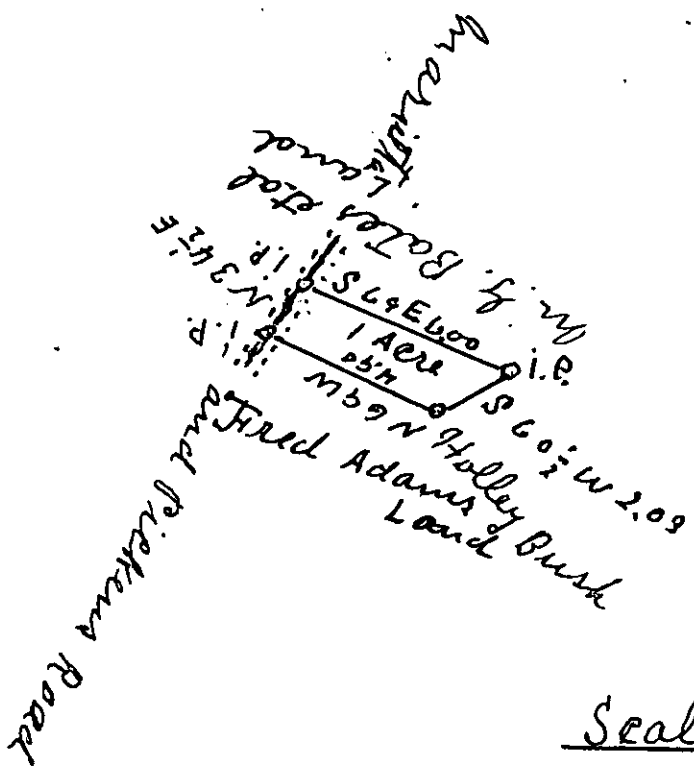 Marietta
and Pickens Road
M. G. Bates et al
Land
N 34½ E
i.P.
i.P.
S 64 E 6.00
1 Acre
4.50
N 69 W
i.P.
S 60½ W 2.09
Holley Bush
Fred Adams
Land
Scal